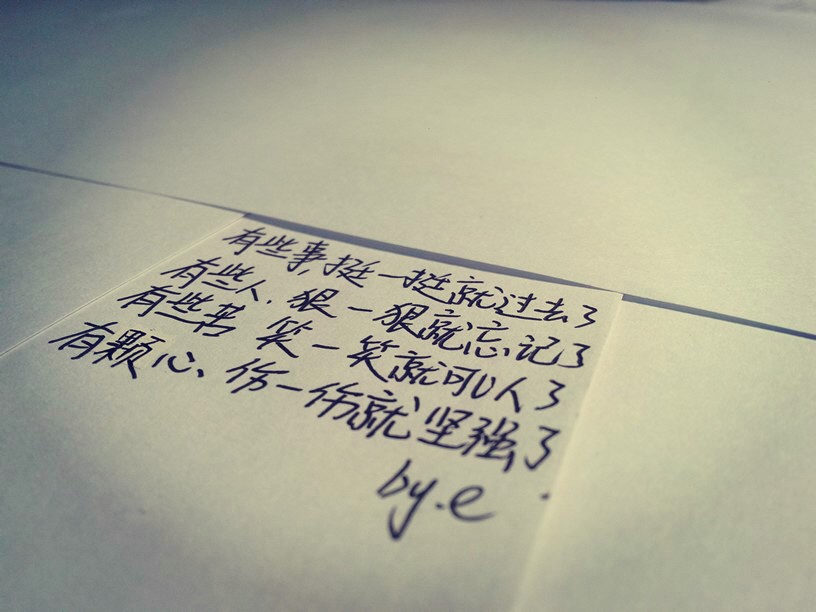 有些事,挺一挺就过去了
有些人、狠一狠就忘记了
有些苦 笑一笑就可以了
有颗心、伤一伤就坚强了
by.e